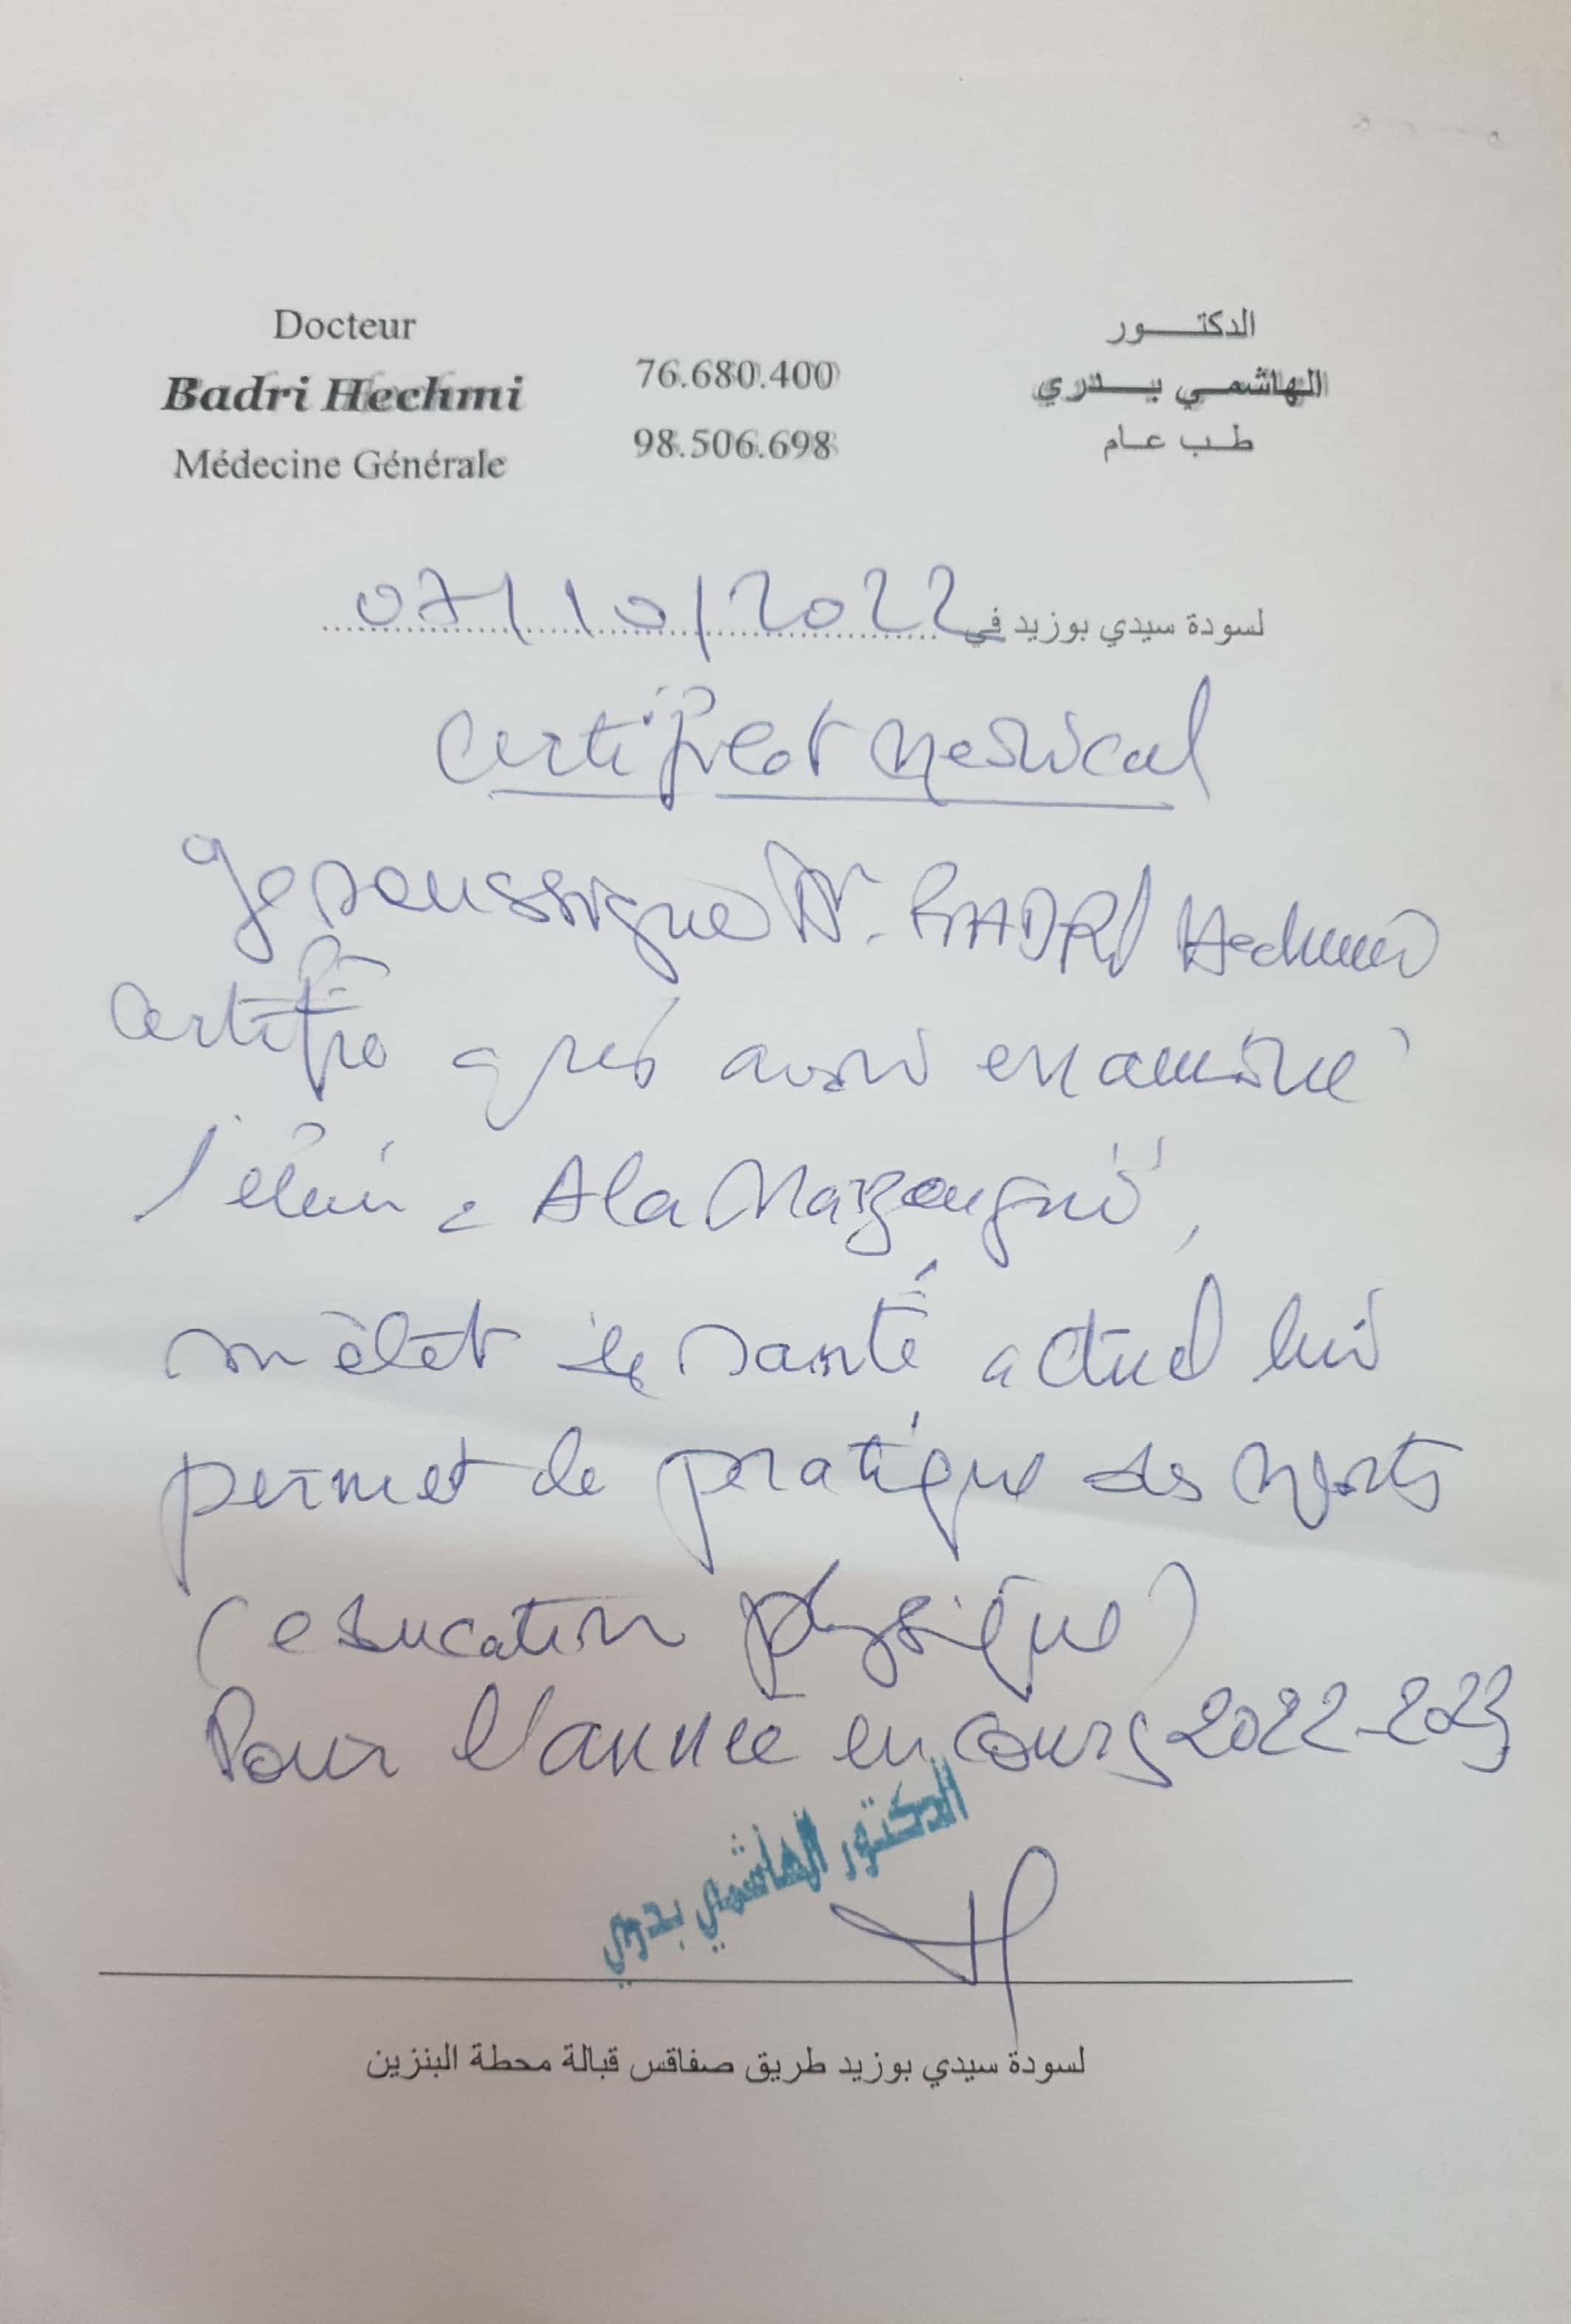 Docteur
Badri Hechmi
Médecine Générale
76.680.400
98.506.698
الدكتـــور
الهاشمـي بـــدري
طـب عـام
لسودة سيدي بوزيد في 07/10/2022
Certificat medical
Je soussigné Dr. BADRI Hechmi
certifie après avoir examiné
l'élève : Ala
son état de santé actuel lui
permet de pratique des sports
(education physique)
Pour l'année en cours 2022-2023
الدكتور الهاشمي بدري
لسودة سيدي بوزيد طريق صفاقس قبالة محطة البنزين